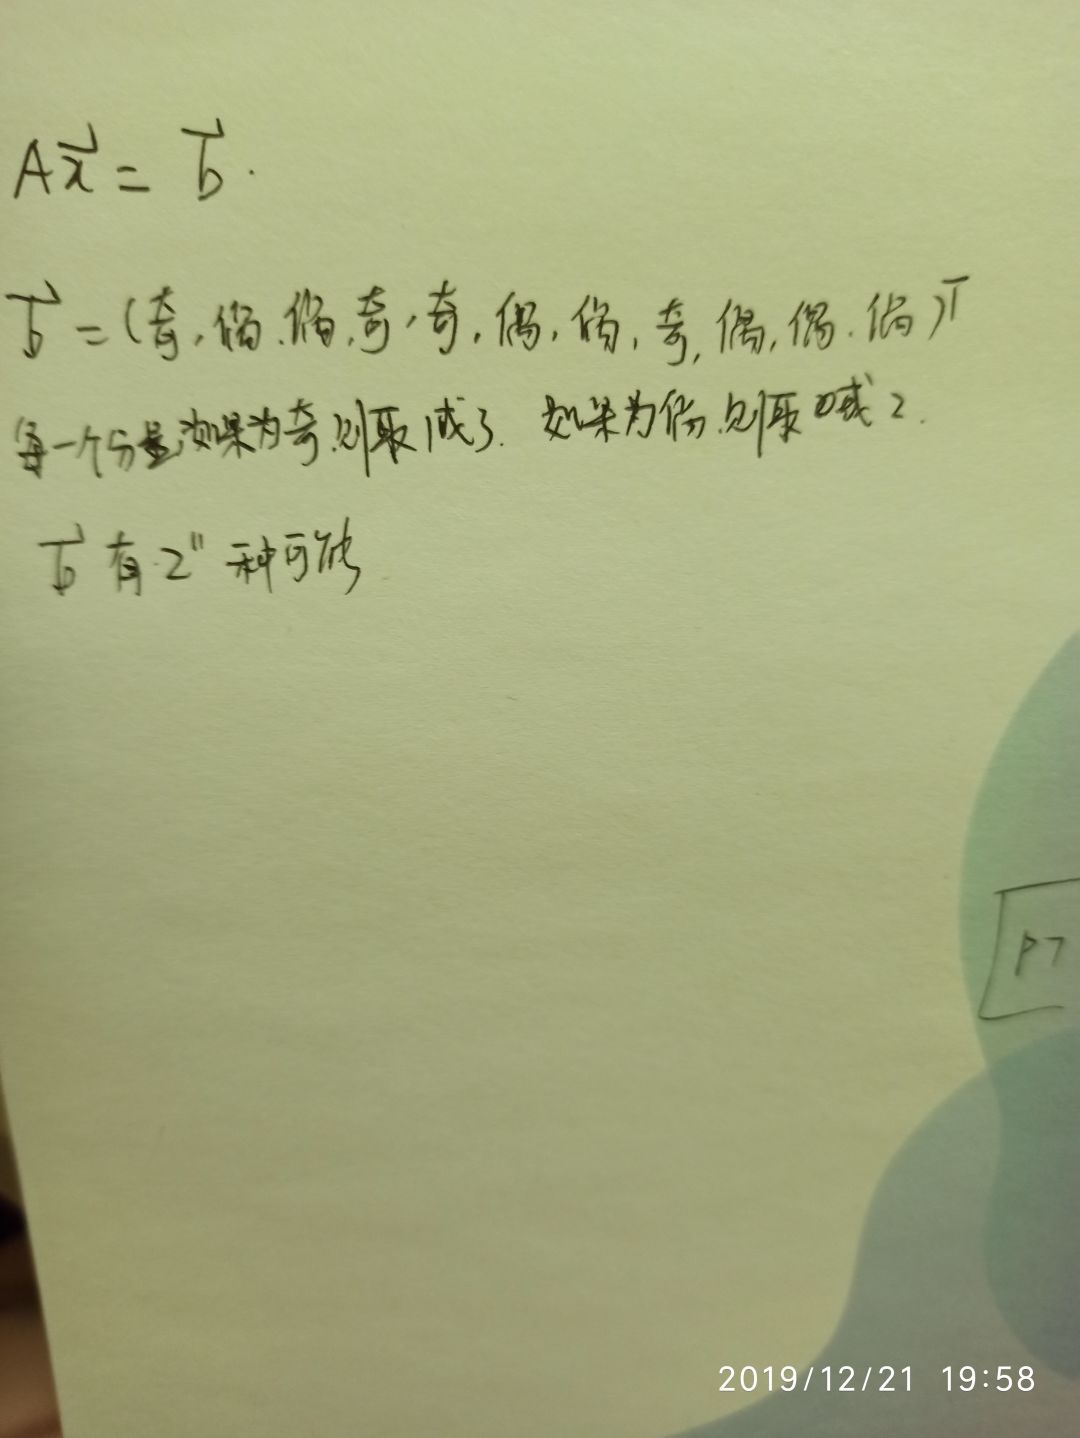 Ax⃗ = b⃗.
b⃗ = (奇,偶,偶,奇,奇,偶,偶,奇,偶,偶,偶)ᵀ
每一个分量,如果为奇,则取1或3. 如果为偶,则取0或2.
b⃗ 有 2¹¹ 种可能
P7
2019/12/21 19:58